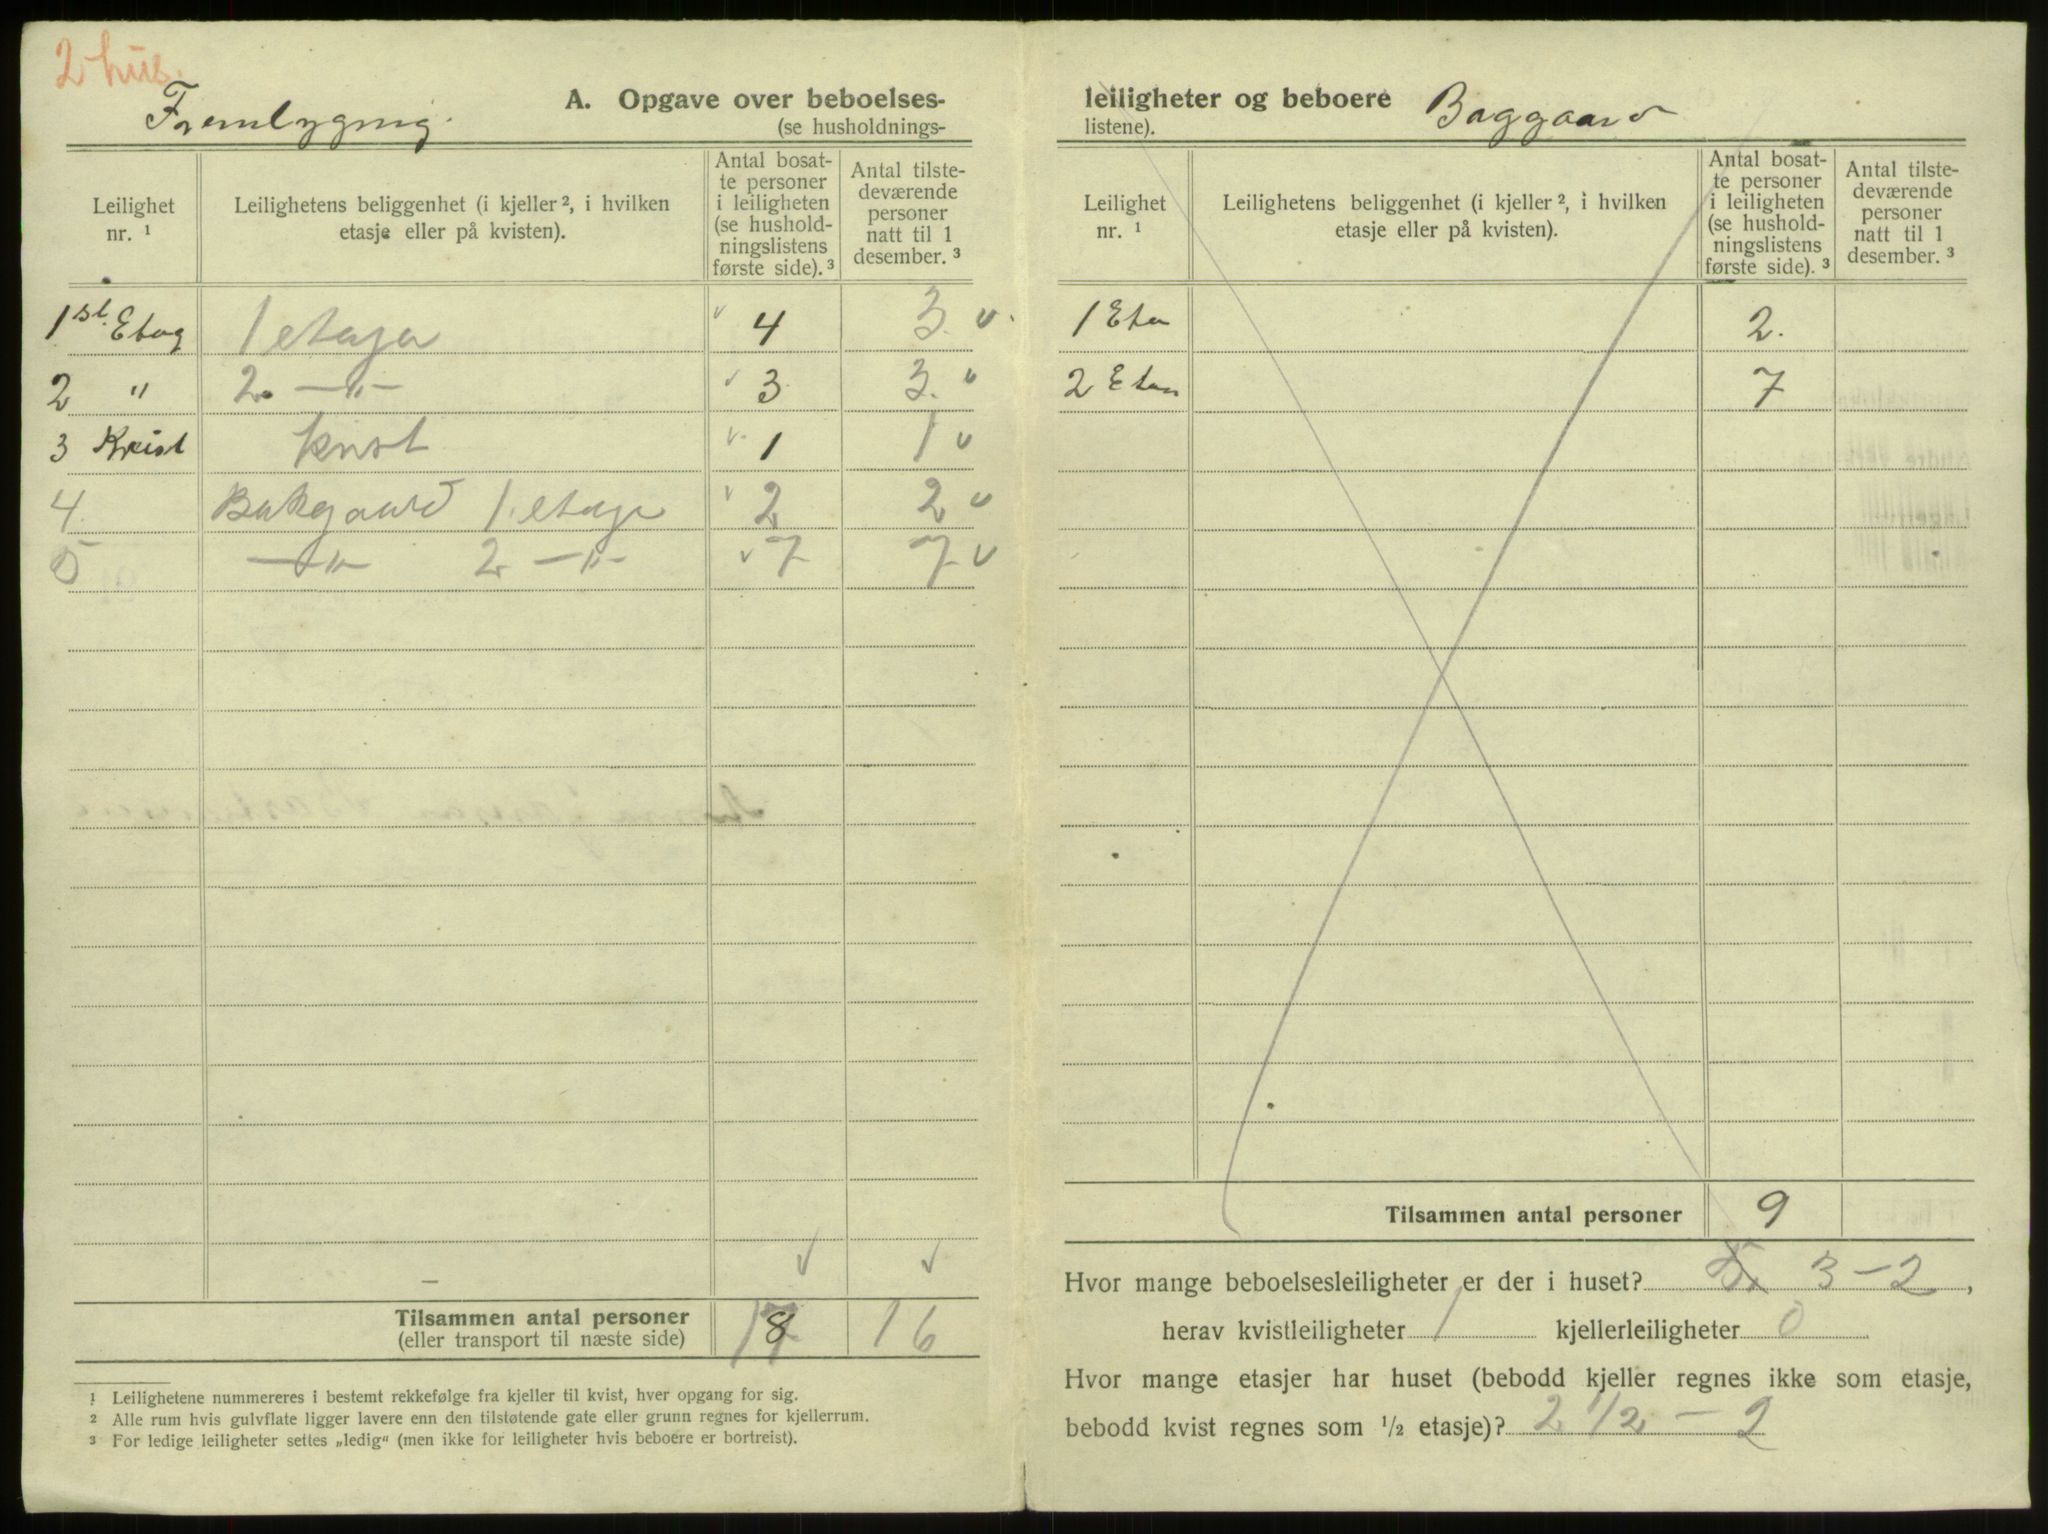 2 hus.
Frembygnig.
A. Opgave over beboelses-
(se husholdnings-
Leilighet
nr. 1
Leilighetens beliggenhet (i kjeller 2, i hvilken
etasje eller på kvisten).
Antal bosat-
te personer
i leiligheten
(se hushold-
ningslistens
første side). 3
Antal tilste-
deværende
personer
natt til 1
desember. 3
1st. Etag 1 etasje 4 3. v.
2 " 2. —"— 3. 3. v
3 Kvist kvist 1 1 v
4. Bakgaard 1. etasje 2 2 v
5 —"— 2 —"— 7 7 v
Tilsammen antal personer
(eller transport til næste side)
8 16
1 Leilighetene nummereres i bestemt rekkefølge fra kjeller til kvist, hver opgang for sig.
2 Alle rum hvis gulvflate ligger lavere enn den tilstøtende gate eller grunn regnes for kjellerrum.
3 For ledige leiligheter settes „ledig“ (men ikke for leiligheter hvis beboere er bortreist).
leiligheter og beboere
Baggaard
listene).
Leilighet
nr. 1
Leilighetens beliggenhet (i kjeller 2, i hvilken
etasje eller på kvisten).
Antal bosat-
te personer
i leiligheten
(se hushold-
ningslistens
første side). 3
Antal tilste-
deværende
personer
natt til 1
desember. 3
1 Eta 2.
2 Etas 7
Tilsammen antal personer 9
Hvor mange beboelsesleiligheter er der i huset? 5. 3 — 2,
herav kvistleiligheter 1 kjellerleiligheter 0
Hvor mange etasjer har huset (bebodd kjeller regnes ikke som etasje,
bebodd kvist regnes som 1/2 etasje)? 2 1/2 — 2